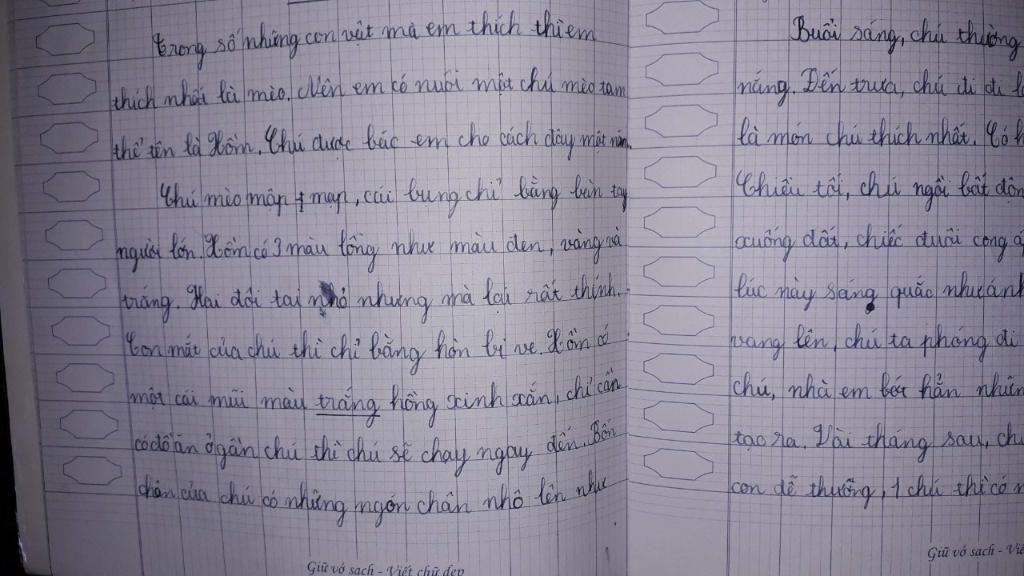 Trong số những con vật mà em thích thì em
thích nhất là mèo. Nên em có nuôi một chú mèo tam
thể tên là Xồm. Chú được bác em cho cách đây một năm.
Chú mèo mập mạp, cái bụng chỉ bằng bàn tay
người lớn. Xồm có 3 màu lông như màu đen, vàng và
trắng. Hai đôi tai nhỏ nhưng mà lại rất thính.
Con mắt của chú thì chỉ bằng hòn bi ve. Xồm có
một cái mũi màu trắng hồng xinh xắn, chỉ cần
có đồ ăn ở gần chú thì chú sẽ chạy ngay đến. Bốn
chân của chú có những ngón chân nhô lên như
Giữ vở sạch - Viết chữ đẹp
Buổi sáng, chú thường
nắng. Đến trưa, chú đi đi
là món chú thích nhất. Có
Chiều tối, chú ngồi bất độn
xuống đất, chiếc đuôi cong
lúc này sáng quắc như ánh
vang lên, chú ta phóng đi
chú, nhà em bớt hẳn nhữn
tạo ra. Vài tháng sau, chú
con dễ thương, 1 chú thì có
Giữ vở sạch - Viế